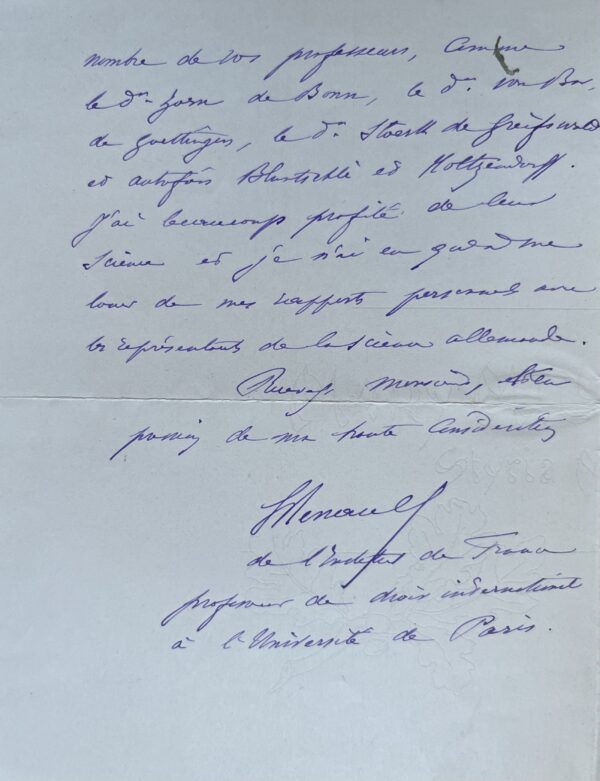 nombre de vos professeurs, comme
le Dr. Zorn de Bonn, le Dr. von Bar,
de Goettingen, le Dr. Stoerk de Greifswald
et autrefois Bluntschli et Holtzendorff.
J'ai beaucoup profité de leur
science et je n'ai eu qu'à me
louer de mes rapports personnels avec
les représentants de la science allemande.
Recevez, Monsieur,
de ma haute considération
LRenault
de l'Institut de France
professeur de droit international
à l'Université de Paris.
Styria